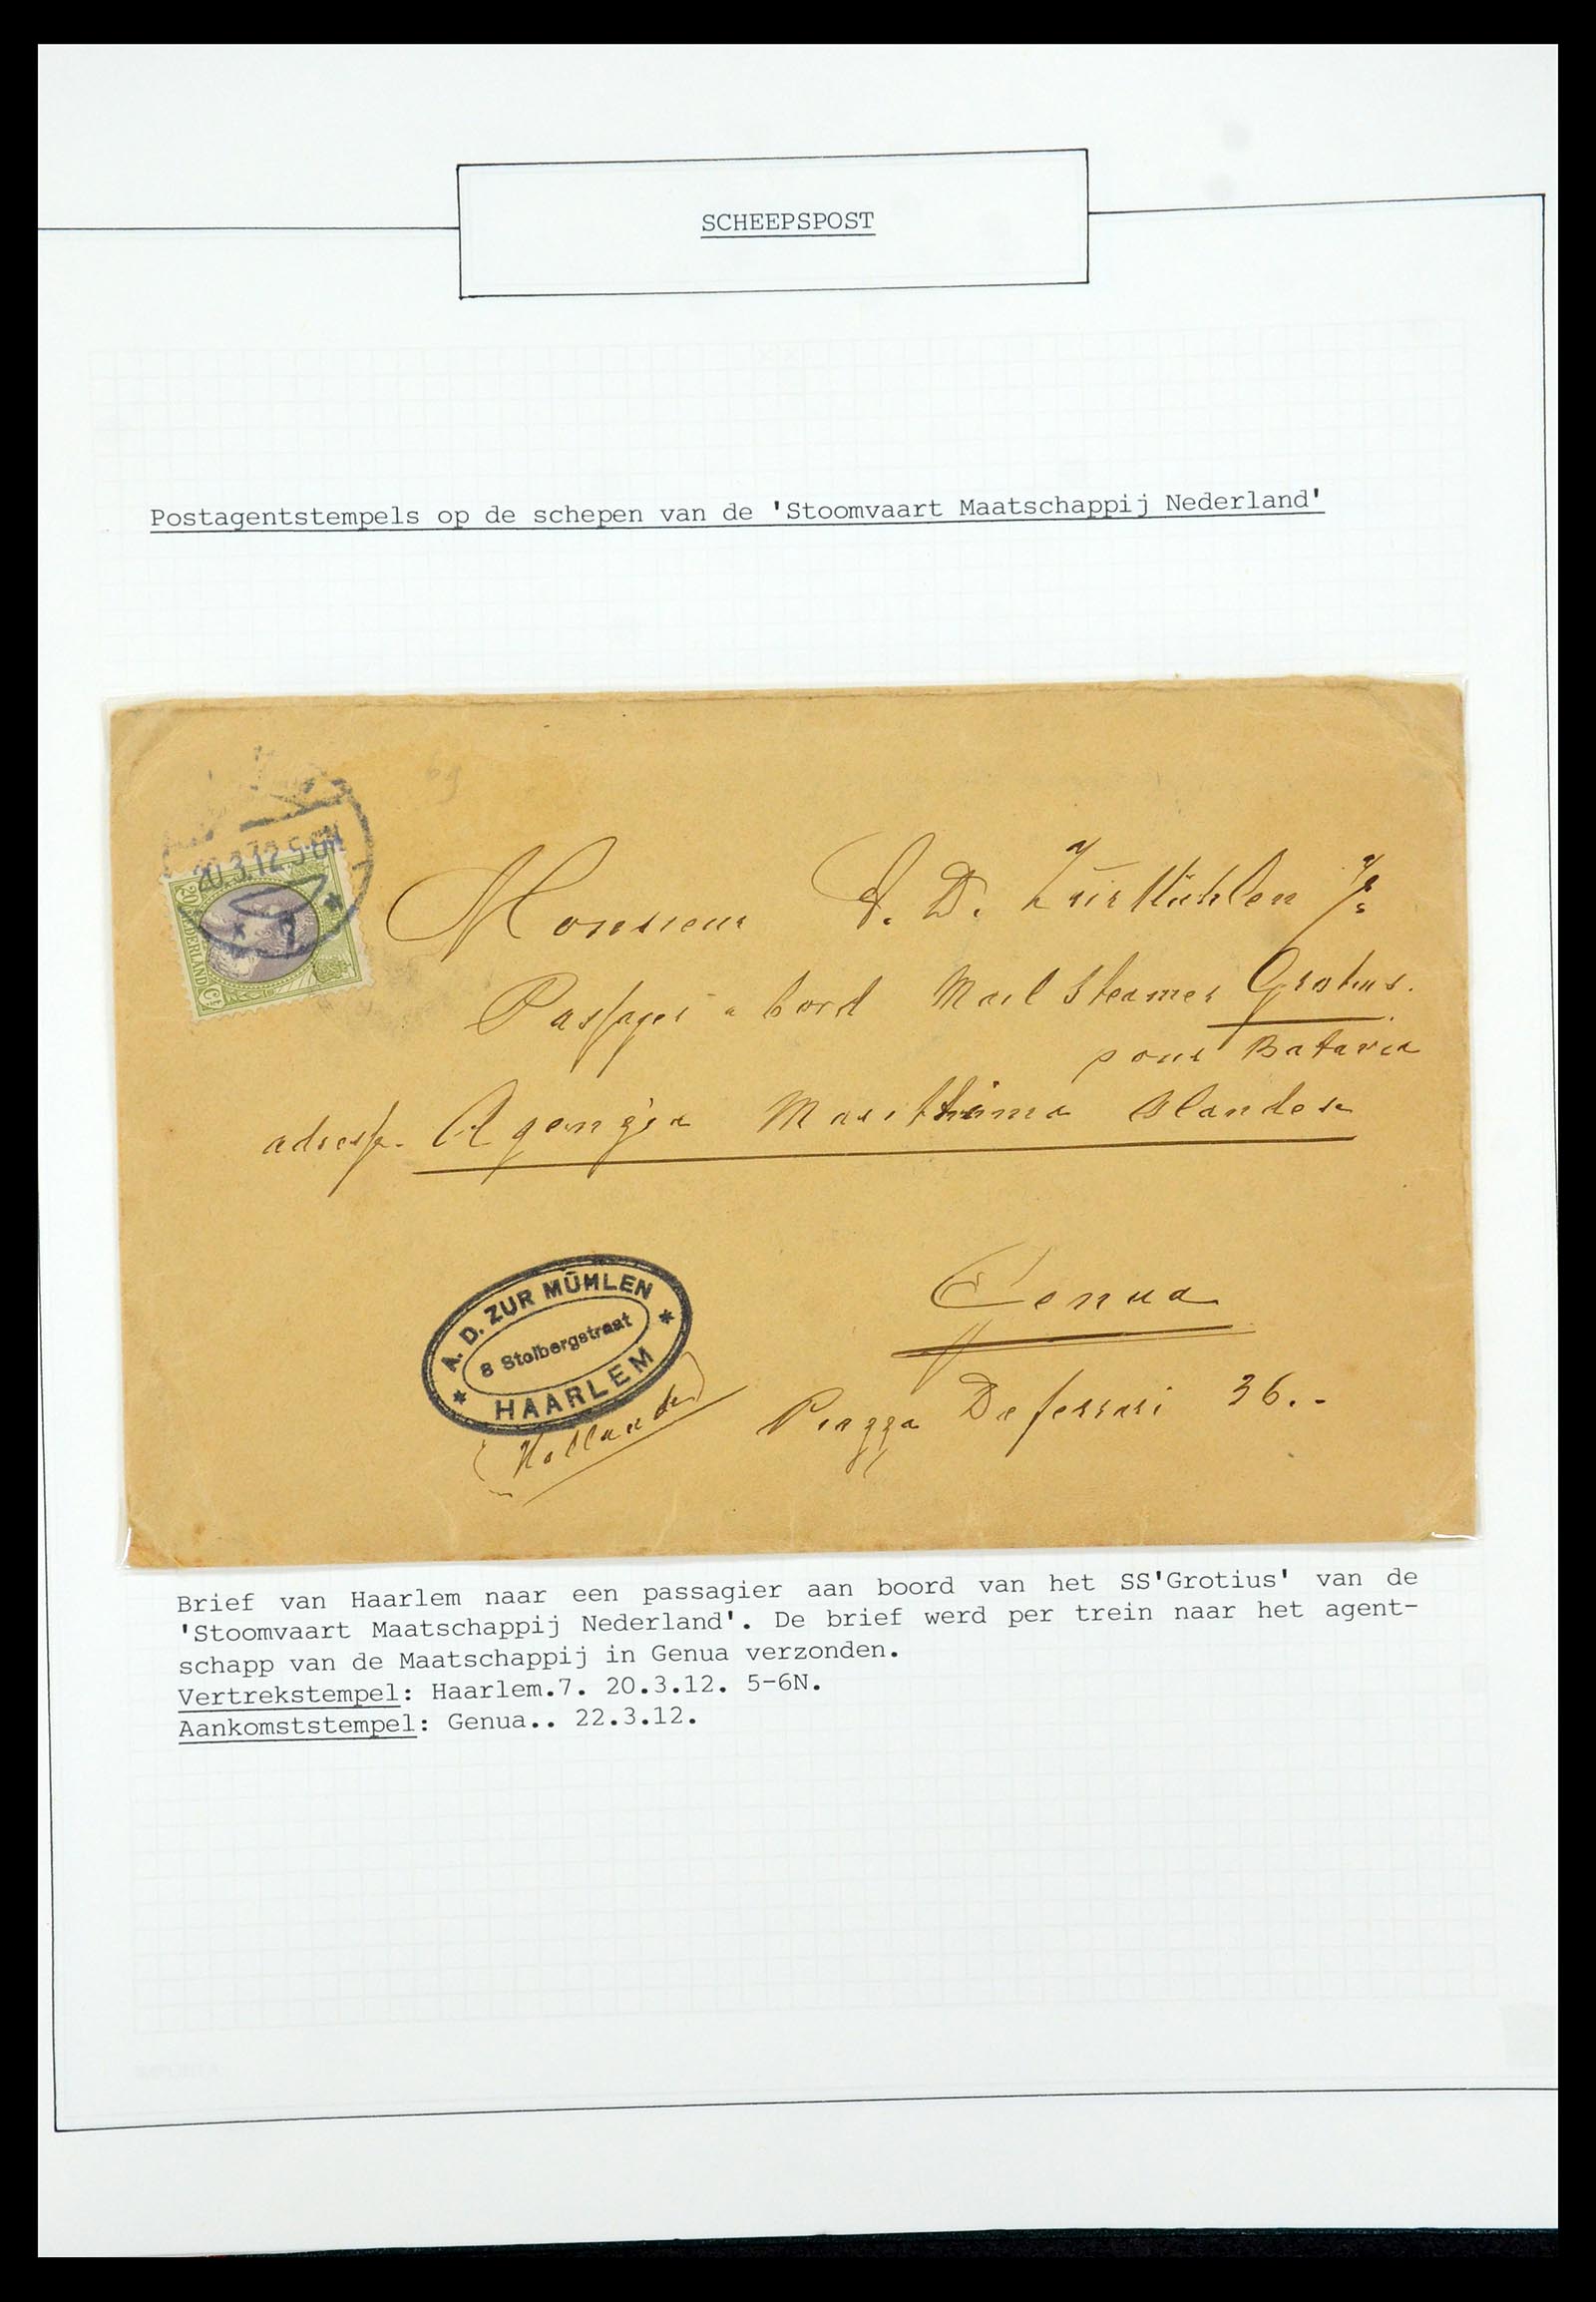 SCHEEPSPOST
Postagentstempels op de schepen van de 'Stoomvaart Maatschappij Nederland'
20.3.12.5-6N
7
20 NEDERLAND Ct
Monsieur A. D. Zur Mühlen
Passager a bord Mail Steamer Grotius.
pour Batavia
adresse. Agenzia Marithima Olandese
Genua
Piazza De ferrari 36.-
A. D. ZUR MÜHLEN
8 Stolbergstraat
HAARLEM
(Hollande)
Brief van Haarlem naar een passagier aan boord van het SS'Grotius' van de
'Stoomvaart Maatschappij Nederland'. De brief werd per trein naar het agent-
schapp van de Maatschappij in Genua verzonden.
Vertrekstempel: Haarlem.7. 20.3.12. 5-6N.
Aankomststempel: Genua.. 22.3.12.